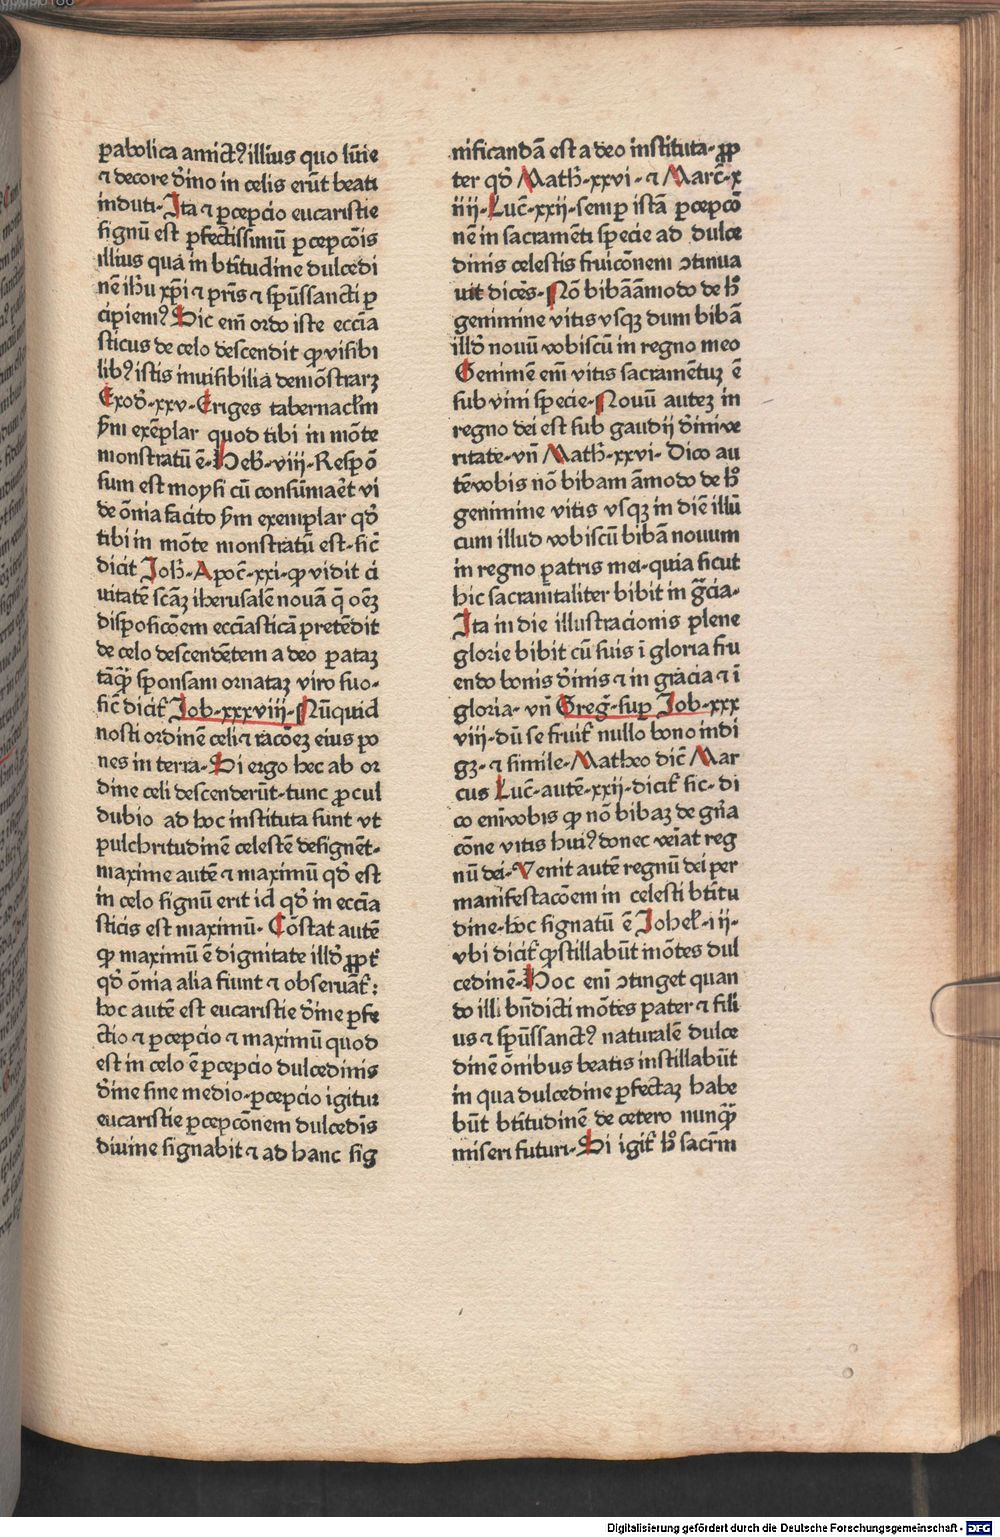 ꝑabolica amictꝰ illius quo lūīe
⁊ decore dīno in celis erūt beati
induti. Ita ⁊ ꝑcepcio eucaristie
signū est ꝑfectissimū ꝑcepcōīs
illius qua in btītudine dulcedi
nē ihū xp̄i ⁊ pr̄is ⁊ sp̄ūssancti ꝑ
cipiemꝰ Hic em̄ ordo iste eccīa
sticus de celo descendit ꝙ visibi
libꝰ istis inuisibilia demōstrarꝫ
Exod̄.xxv. Eriges tabernacl̄m
ẜm exēplar quod tibi in mōte
monstratū ē. Heb̄.viii. Respō
sum est moysi cū consūmaēt vi
de ōnia facito ẜm exemplar qd̄
tibi in mōte monstratū est. sic̄
dicit Joh̄. Apoc̄.xxi. ꝙ vidit ci
uitatē scāꝫ iherusalē nouā q̄ oēꝫ
disposicōem eccīasticā pretēdit
de celo descendētem a deo pataꝫ
tāꝙ̄ sponsam ornataꝫ viro suo.
sic̄ dicit̄ Job.xxxviii. Nūquid
nosti ordinē celi ⁊ racōeꝫ eius po
nes in terra. Si ergo hec ab or
dine celi descenderūt. tunc ꝓcul
dubio ad hoc instituta sunt vt
pulchritudinē celestē designēt.
maxime autē ⁊ maximū qd̄ est
in celo signū erit id qd̄ in eccīa
sticis est maximū. Cōstat autē
ꝙ maximū ē dignitate illd̄ ꝓpt̄
qd̄ ōnia alia fiunt ⁊ obseruāt̄:
hoc autē est eucaristie dīne ꝑfe
ctio ⁊ ꝑcepcio ⁊ maximū quod
est in celo ē ꝑcepcio dulcedinis
dīne sine medio. ꝑcepcio igitur
eucaristie ꝑcepcōnem dulcedīs
diuine signabit ⁊ ad hanc sig
nificandā est a deo instituta. ꝓp
ter qd̄ Math̄.xxvi. ⁊ Marc̄.x
iiij. Luc̄.xxij. semꝑ istā ꝑcepcō
nē in sacramēti specie ad dulce
dinis celestis fruicōnem ↄtinua
uit dicēs. Nō bibā āmodo de h̄
genimine vitis vsqꝫ dum bibā
illd̄ nouū vobiscū in regno meo
Genimē em̄ vitis sacramētuꝫ ē
sub vini specie. Nouū auteꝫ in
regno dei est sub gaudij dīni ve
ritate. vn̄ Math̄.xxvi. Dico au
tē vobis nō bibam āmodo de h̄
genimine vitis vsqꝫ in diē illū
cum illud vobiscū bibā nouum
in regno patris mei. quia sicut
hic sacramītaliter bibit in gr̄cia.
Ita in die illustracionis plene
glorie bibit cū suis ī gloria fru
endo bonis dīnis ⁊ in gracia ⁊ ī
gloria. vn̄ Greḡ. suꝑ Job.xxx
viii. dū se fruit̄ nullo bono indi
gꝫ. ⁊ simile. Matheo dic̄ Mar
cus Luc̄. autē.xxij. dicit̄ sic. di
co enī vobis ꝙ nō bibaꝫ de gn̄a
cōne vitis huiꝰ donec vēiat reg
nū dei. Venit autē regnū dei per
manifestacōem in celesti btītu
dine. hoc signatū ē Johel̄.iij.
vbi dicit̄ ꝙ stillabūt mōtes dul
cedinē. Hoc enī ↄtinget quan
do illi bn̄dicti mōtes pater ⁊ fili
us ⁊ sp̄ūssanctꝰ naturalē dulce
dinē ōnibus beatis instillabūt
in qua dulcedine ꝑfectaꝫ habe
būt btītudinē de cetero nunꝙ̄
miseri futuri. Si igit̄ h̄ sacr̄m
Digitalisierung gefördert durch die Deutsche Forschungsgemeinschaft - DFG